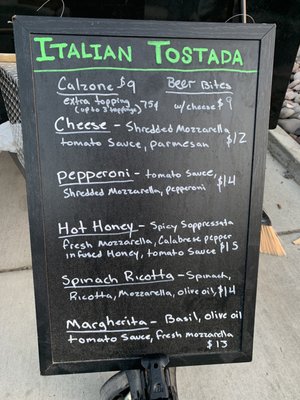 Italian Tostada
Calzone $9
extra topping 75¢
(up to 3 toppings)
Beer Bites
w/cheese $9
Cheese - Shredded Mozzarella
tomato Sauce, parmesan $12
pepperoni - tomato Sauce,
Shredded Mozzarella, pepperoni $14
Hot Honey - Spicy Soppressata
fresh Mozzarella, Calabrese pepper
infused Honey, tomato Sauce $15
Spinach Ricotta - Spinach,
Ricotta, Mozzarella, olive oil, $14
Margherita - Basil, olive oil
tomato Sauce, fresh mozzarella
$13